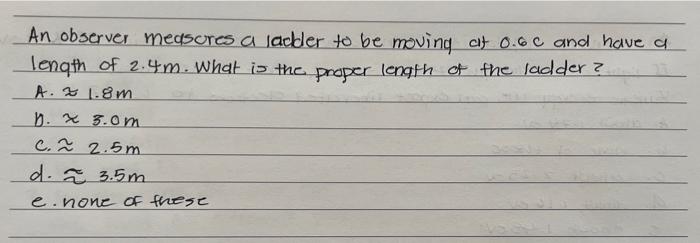 An observer measures a ladder to be moving at 0.6c and have a
length of 2.4m. What is the proper length of the ladder?
A. ≈ 1.8m
b. ≈ 3.0m
c. ≈ 2.5m
d. ≈ 3.5m
e. none of these